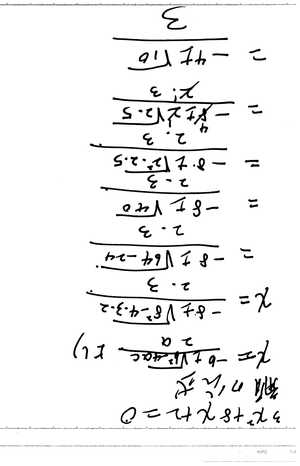 3x²+8x+2=0
解の公式
x = -b±√b²-4ac / 2a より
x = -8±√8²-4·3·2 / 2·3
= -8±√64-24 / 2·3
= -8±√40 / 2·3
= -8±√2²·2·5 / 2·3
= -8±2√2·5 / 2·3
= -4±√10 / 3